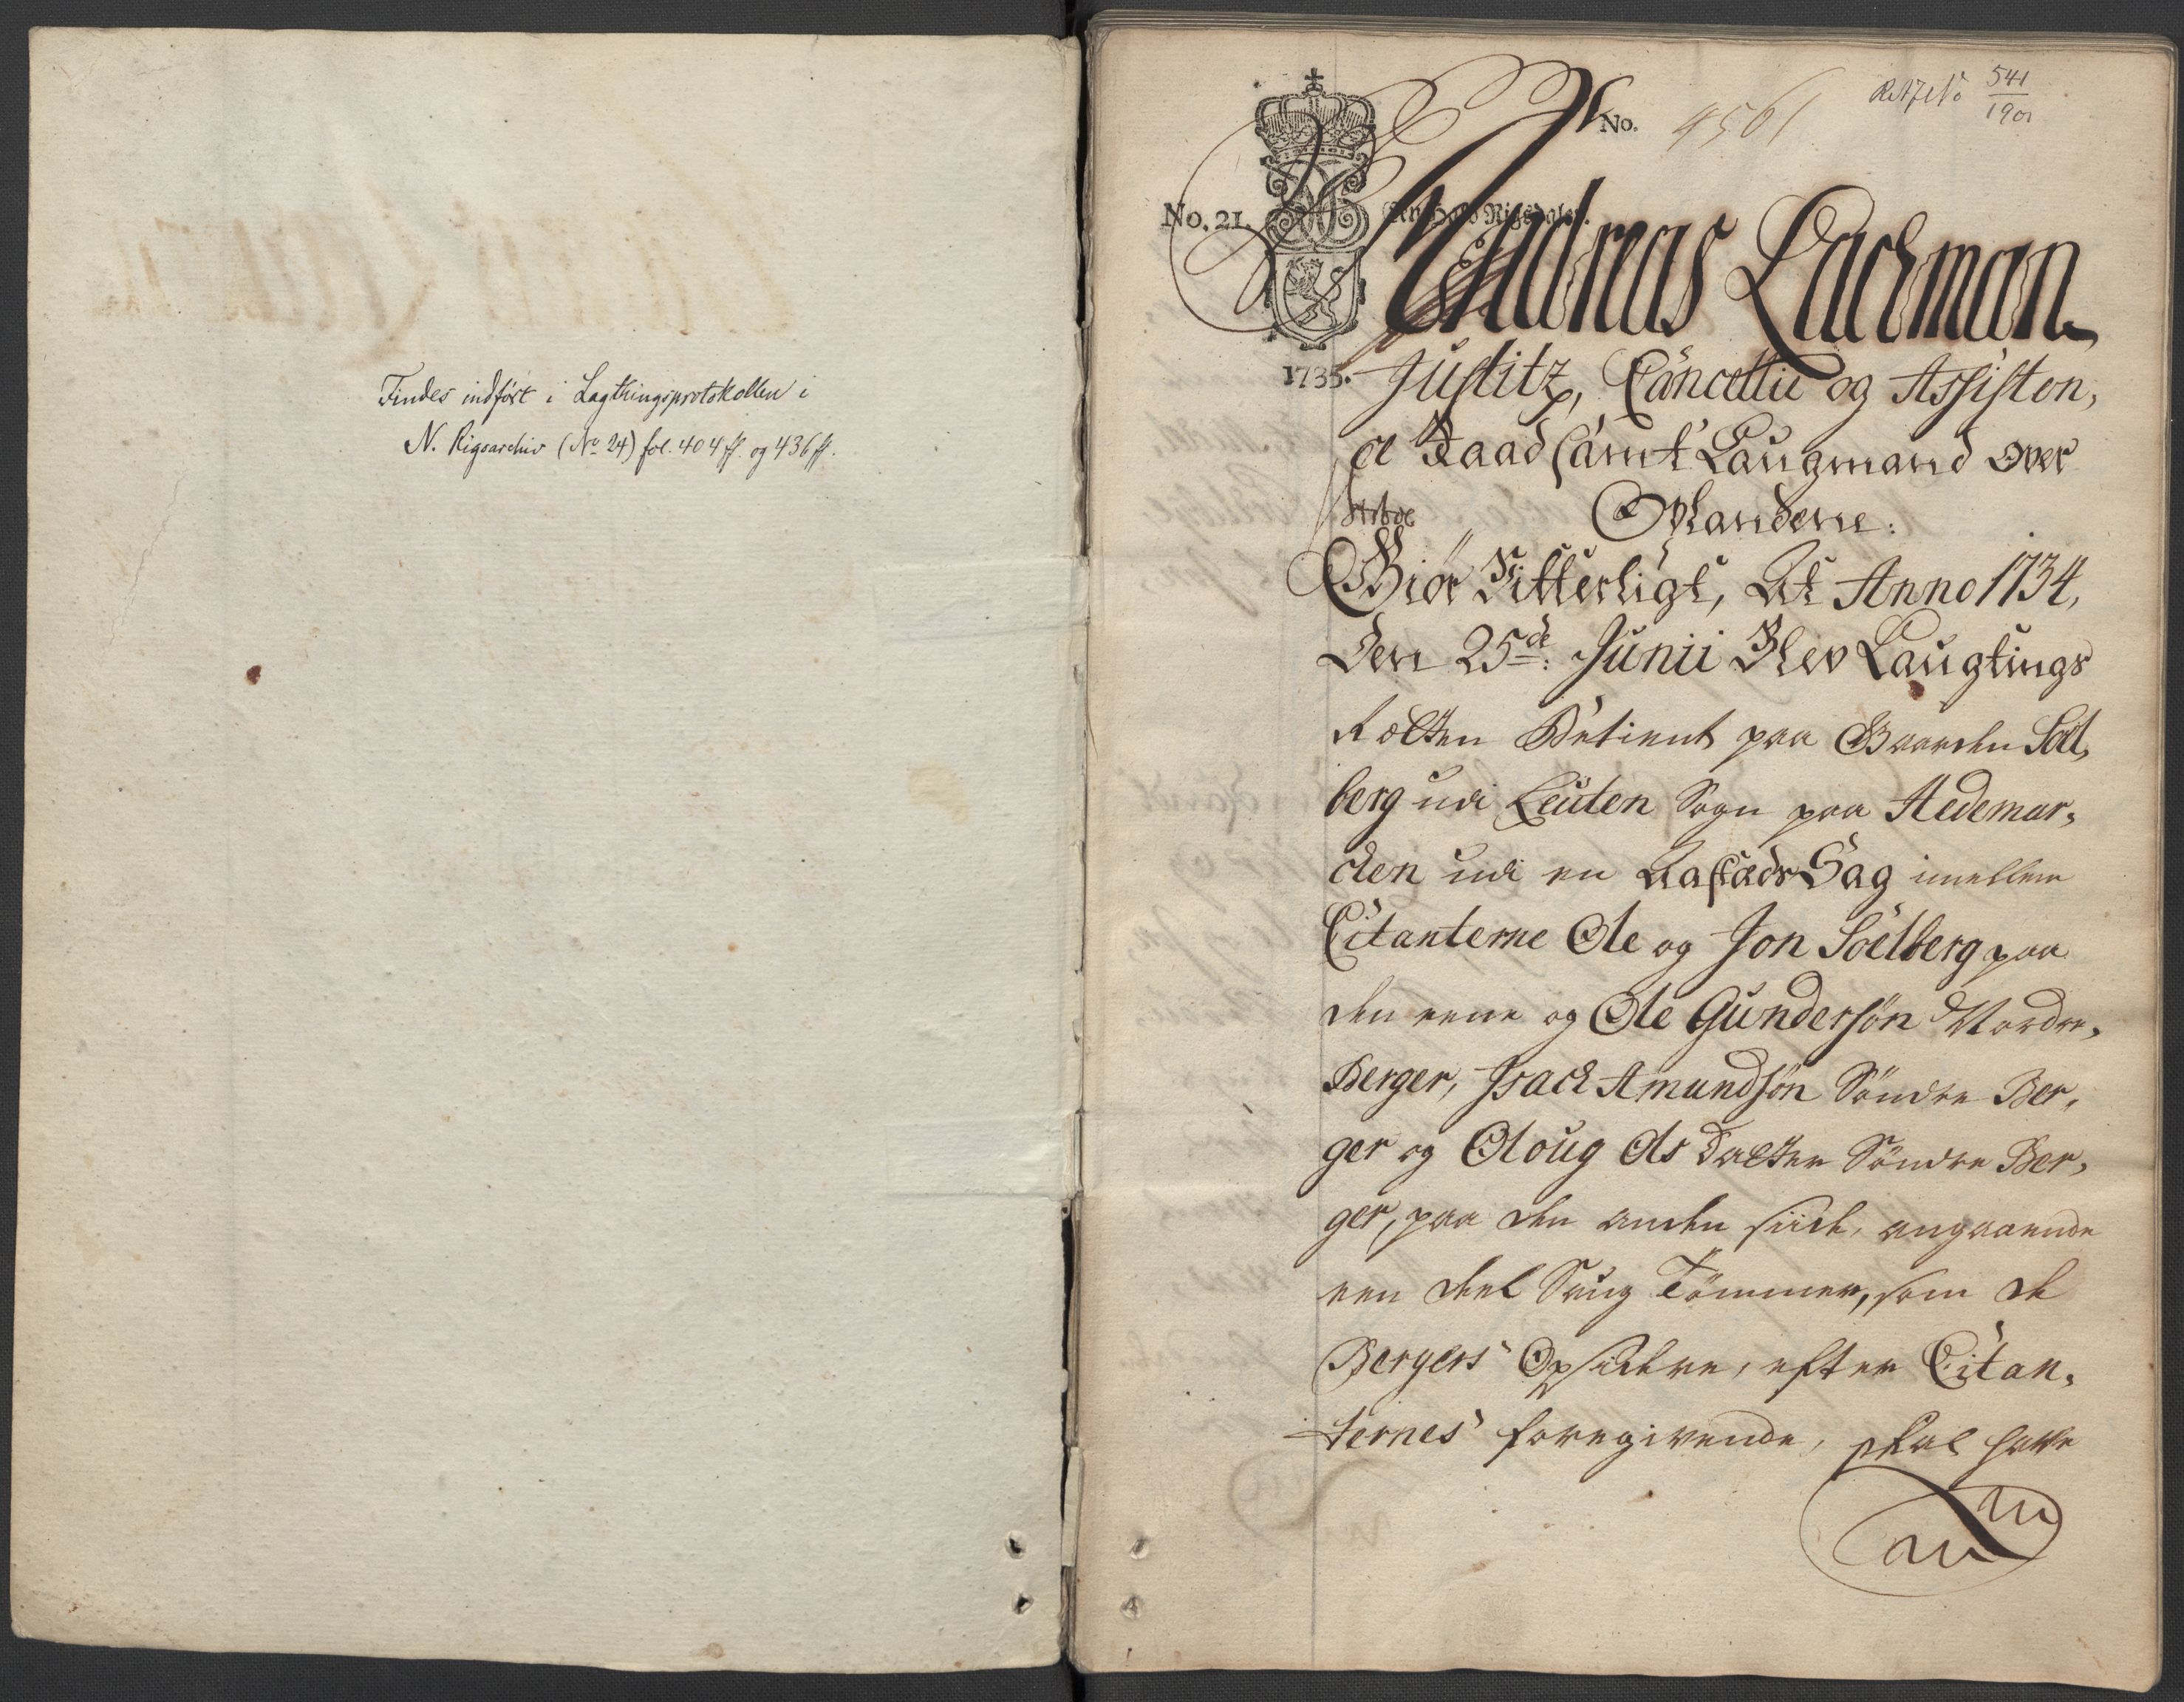 Findes indført i Lagthingsprotokollen i
N. Rigsarchiv (No 24) fol. 404 ff. og 436 ff.
541
1901
No. 4561
No. 21.
1735.
Andreas Lachman
Justitz, Cancellie og Assisten,
ce Raad samt Laugmand over
Oplandene:
Giør Vitterligt, At Anno 1734,
Den 25de: Junii Blev Laugtings
Rætten Betient paa Gaarden Soel,
berg udi Leuten Sogn paa Hedemar,
cken udi en Aastæds Sag imellem
Citanterne Ole og Jon Soelberg paa
den eene og Ole Gundersøn Nordre,
Berger, Isach Amundsøn Søndre Ber,
ger og Oloug Ols Datter Søndre Ber,
ger, paa den anden siide, angaaende
een deel Saug Tømmer, som de
Bergers Opsiddere, efter Citan,
ternes foregivende, skal have